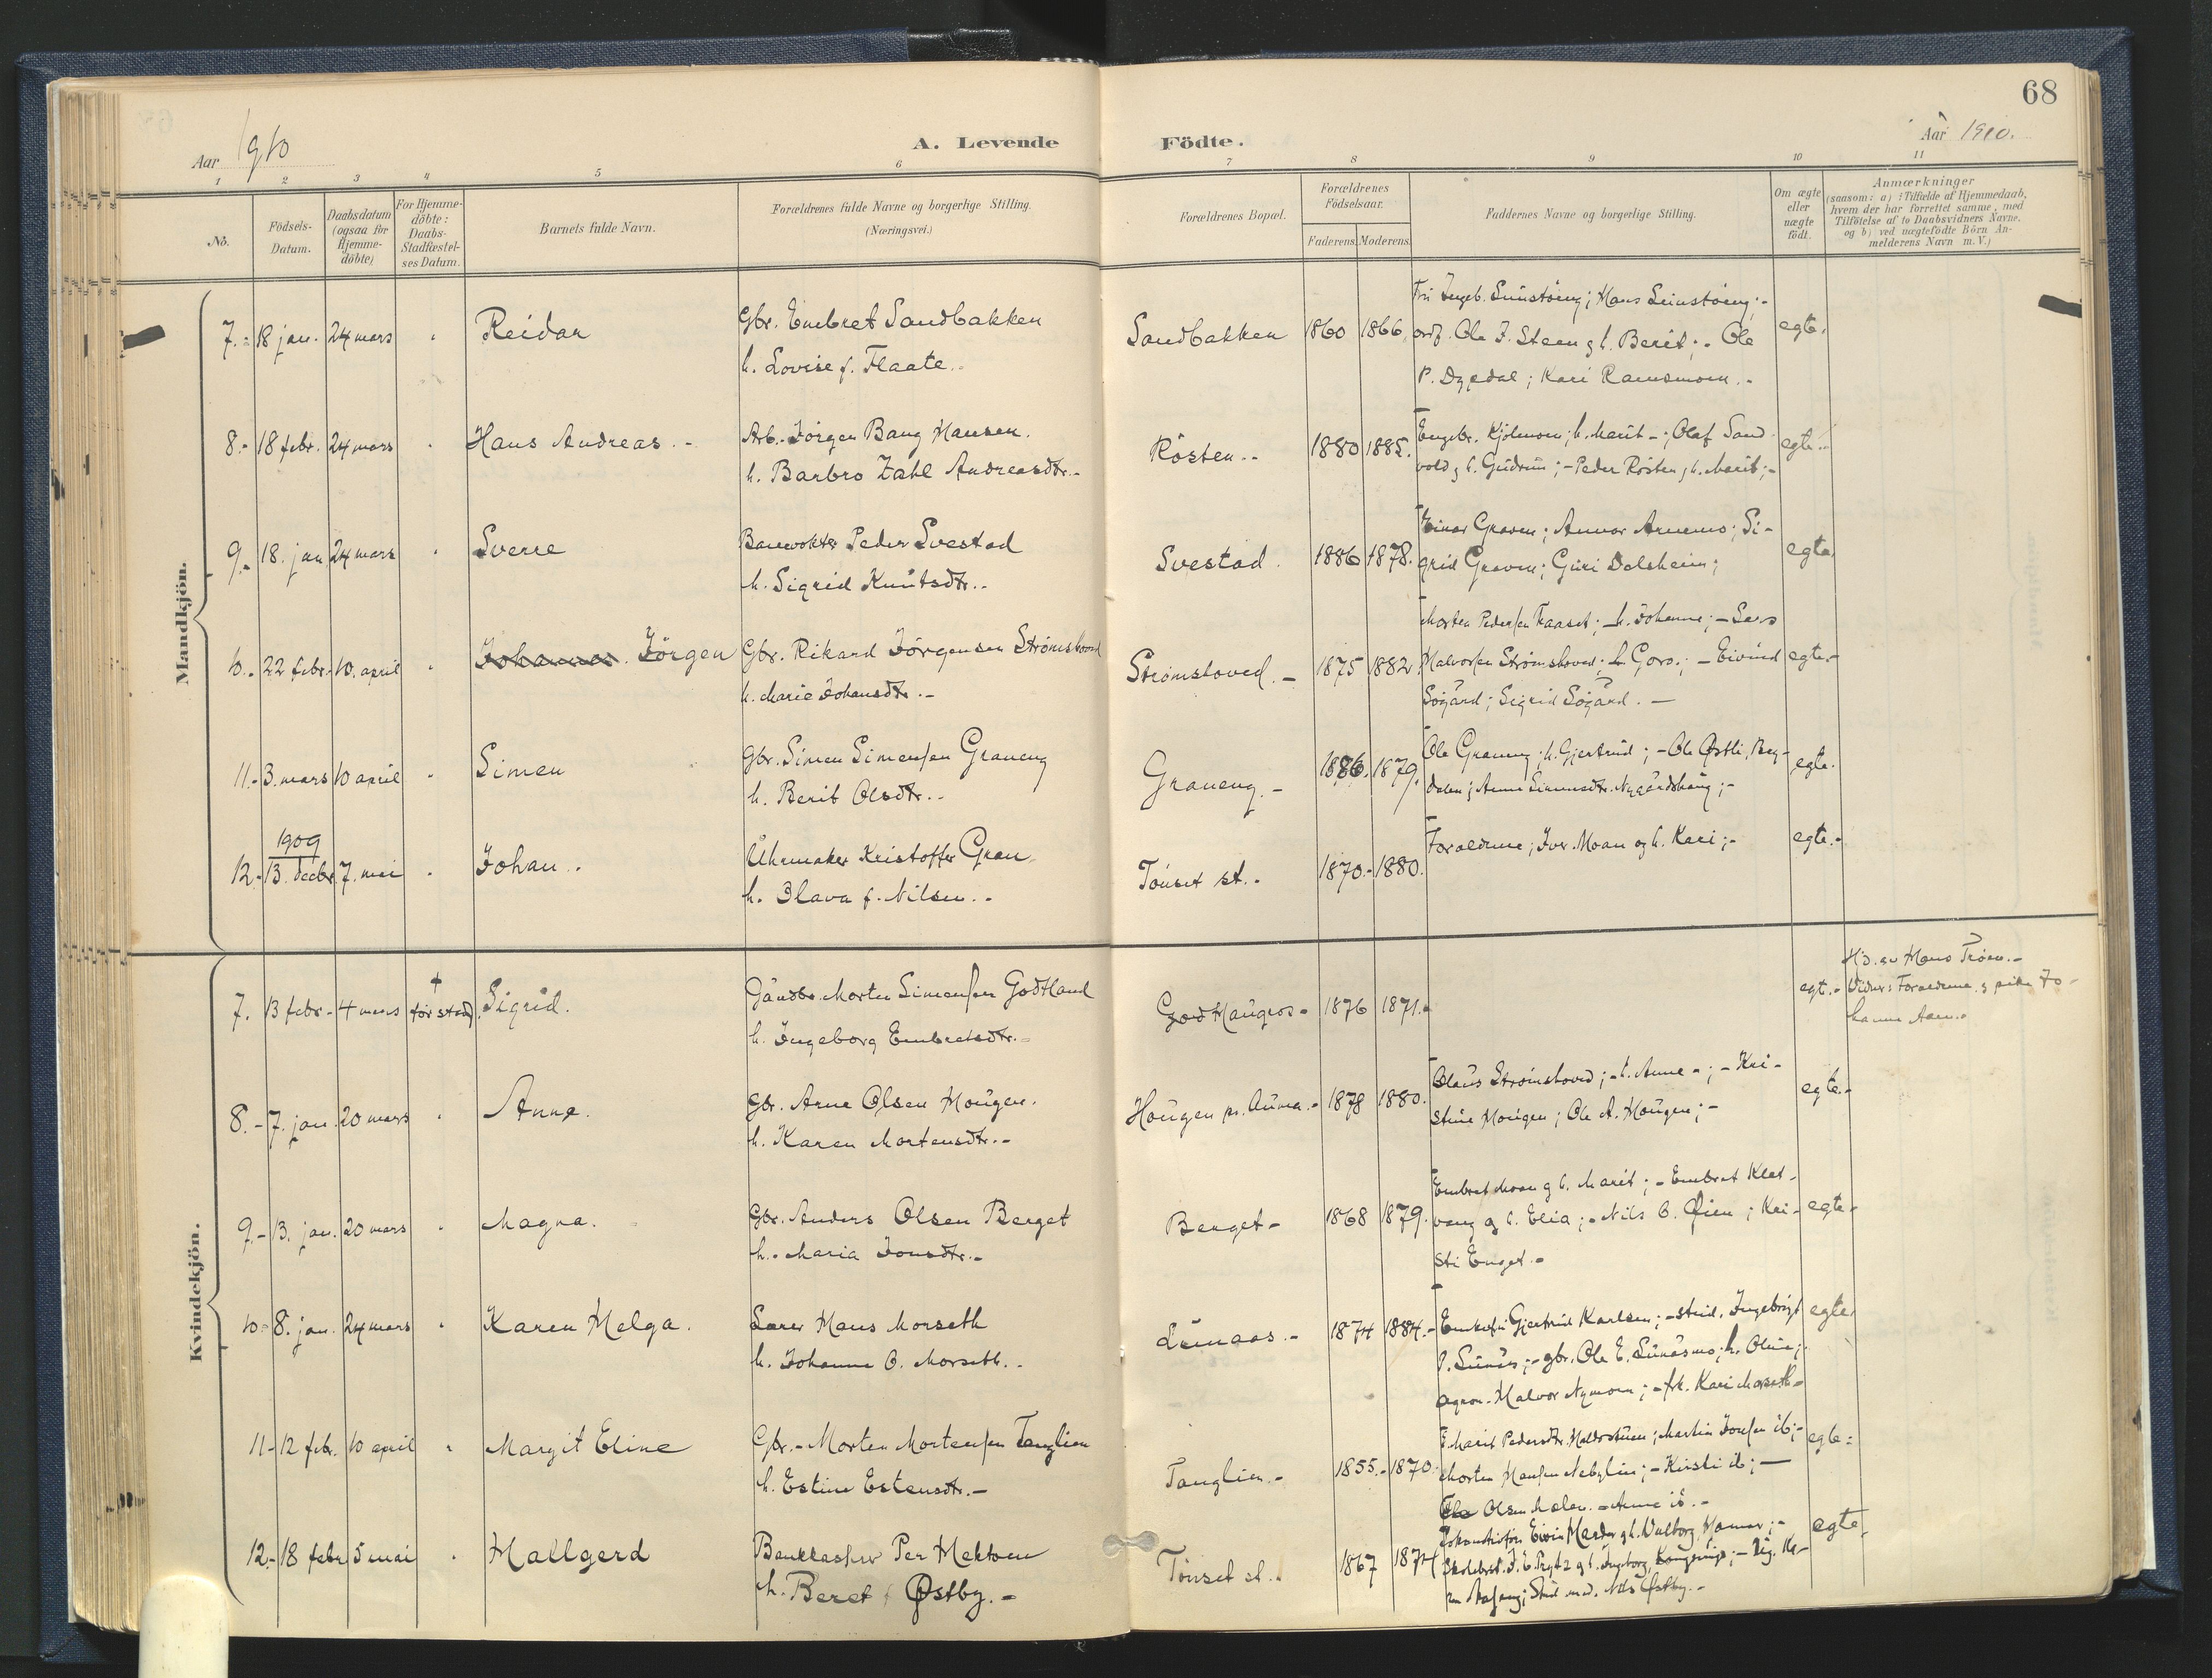 68
Aar 1910
A. Levende Födte.
Aar 1910.
1 2 3 4 5 6 7 8 9 10 11
No.
Födsels-
Datum.
Daabsdatum
(ogsaa for
Hjemme-
döbte)
For Hjemme-
döbte:
Daabs-
Stadfæstel-
ses Datum.
Barnets fulde Navn.
Forældrenes fulde Navne og borgerlige Stilling.
(Næringsvei.)
Forældrenes Bopæl.
Forældrenes
Födselsaar.
Faderens. Moderens.
Faddernes Navne og borgerlige Stilling.
Om ægte
eller
uægte
födt.
Anmærkninger
(saasom: a) i Tilfælde af Hjemmedaab,
hvem der har forrettet samme, med
Tilföielse af to Daabsvidners Navne.
og b) ved uægtefödte Börn An-
melderens Navn m. V.)
Mandkjön.
7.- 18 jan. 24 mars Reidar
Gbr. Embret Sandbakken
h. Lovise f. Flaate.
Sandbakken 1860 1866
Ingeb. ; Hans
Ole J. Steen g h. Berit; - Ole
P. Dypdal; Kari Ramsmoen.-
egte.
8.- 18 febr. 24 mars Hans Andreas.-
Arb. Jörgen Bang Hansen.
h. Barbro Zahl Andreasdtr.-
Rösten.- 1880 1885.
Engebr. Kjölmoen; h. Marit-; Olaf Sand-
vold g h. Gudrun; - Peder Rösten g h. Marit;-
egte.-
9.- 18. jan. 24 mars Sverre
Banevokter Peder Svestad
h. Sigrid Knutsdtr.-
Svestad. 1886 1878.
Einar Graven; Annar Arnemo; Si-
grid Graven; Guri Dalsheim;
egte.
10.- 22 febr.- 10. april Johannes. Jörgen
Gbr. Rikard Jörgensen Strömshoved
h. Marie Johansdtr.-
Strömshoved.- 1875 1882.
Morten Pedersen Traaset; - h. Johanne; - Lars
Halvorsen Strömshoved; h. Goro.; - Eivind
Sögård; Sigrid Sögård.-
egte.-
11.- 3. mars 10 april Simen
Gbr. Simen Simensen Graneng
h. Berit Olsdtr.-
Graneng.- 1886. 1879.
Ole Graneng; h. Gjertrud; - Ole Østli,
; Anne Simensdtr. Nygårdshaug;-
egte.
1909
12.- 13. decbr. 7. mai Johan.
Uhrmaker Kristoffer Gran
h. Olava f. Nilsen.-
Tönset st.- 1870.- 1880.
Forældrene; Ivr. Moan og h. Kari;-
egte.-
Kvindekjön.
7. 13 febr.- 4 mars
†
för stadf.
Sigrid.
Gårdbr. Morten Simensen Godtland
h. Ingeborg Embretsdtr.-
Haugros- 1876 1871.-
egt.-
Hd. av Hans Tröen.-
Vidner: Foraeldrene g pike Jo-
hanne Aaen.-
8.- 7. jan. 20 mars Anne.
Gbr. Arne Olsen Hougen.
h. Karen Mortensdtr.-
Hougen pr. Auma.- 1878 1880.
Olaus Strömshoved; - h. Anne-; - Kri-
stine Hougen; Ole A. Hougen;-
egte.-
9.- 13. jan. 20 mars Magna.
Gbr. Anders Olsen Berget
h. Maria Jonsdtr.-
Berget- 1868 1879.
Embret Moan g h. Marit; - Embret Klet-
vang og h. Elia; - Nils O. Øien; Kri-
sti Enget.-
egte.-
10.- 8. jan. 24 mars Karen Helga.
Lærer Hans Morseth
h. Johanne O. Morseth.-
Lunaas.- 1874 1884.-
Enkefru Gjertrud Karlsen; - stud. Ingebrigt
P. Lunås; - gbr. Ole E. Lunåsmo; h. Oline;
agron. Halvor Nymoen; - frk. Kari Morseth-
egte.
11- 12 febr. 10 april Margit Eline
Gbr.- Morten Mortensen Tanglien
h. Estine Estensdtr.-
Tanglien.- 1855.- 1870.
Marit Pedersdtr. ; Martin Jonsen ib;-
Morten Hansen Nebylien; - Kirsti ib;-
Olsen Moen.- Anne ib.-
egte.-
12.- 18 febr 5 mai Hallgerd
Bankkasserer Per Hektoen
h. Beret f Østby.-
Tönset st. 1867 1874
Harder g h. Valborg, Hamar;-
Prytz g h. Ingeborg, ; -
Stud. med. Nils Østby.-
egte.